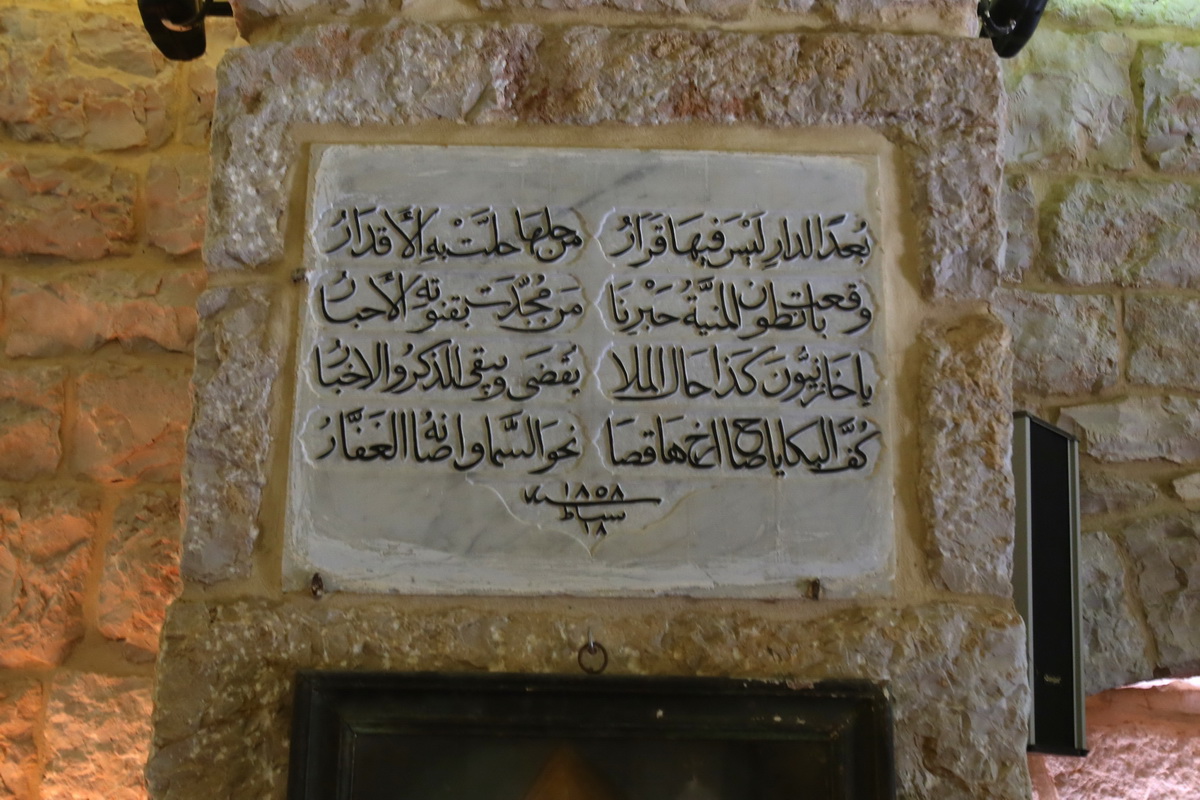 بُعدًا لدارِ لَيْسَ فيهَا قَرَارُ مَن حلهَا حلتْ بهِ الأَقدَارُ
وقعت بانطون المنيَّةُ حَبْرِنَا مَن مُجدَّت بقنوتهِ الأحبارُ
يا خازنيُّونَ كَذَا حَال الملا يُقضَى ويبقى للذكرُ والاخبارُ
كُفَّ البكا يا صاح ارخ هَا قصَا نحوَ السَّما واضاانهُ الغَفَّارُ
سنة ١٨٥٨
شباط
١٨